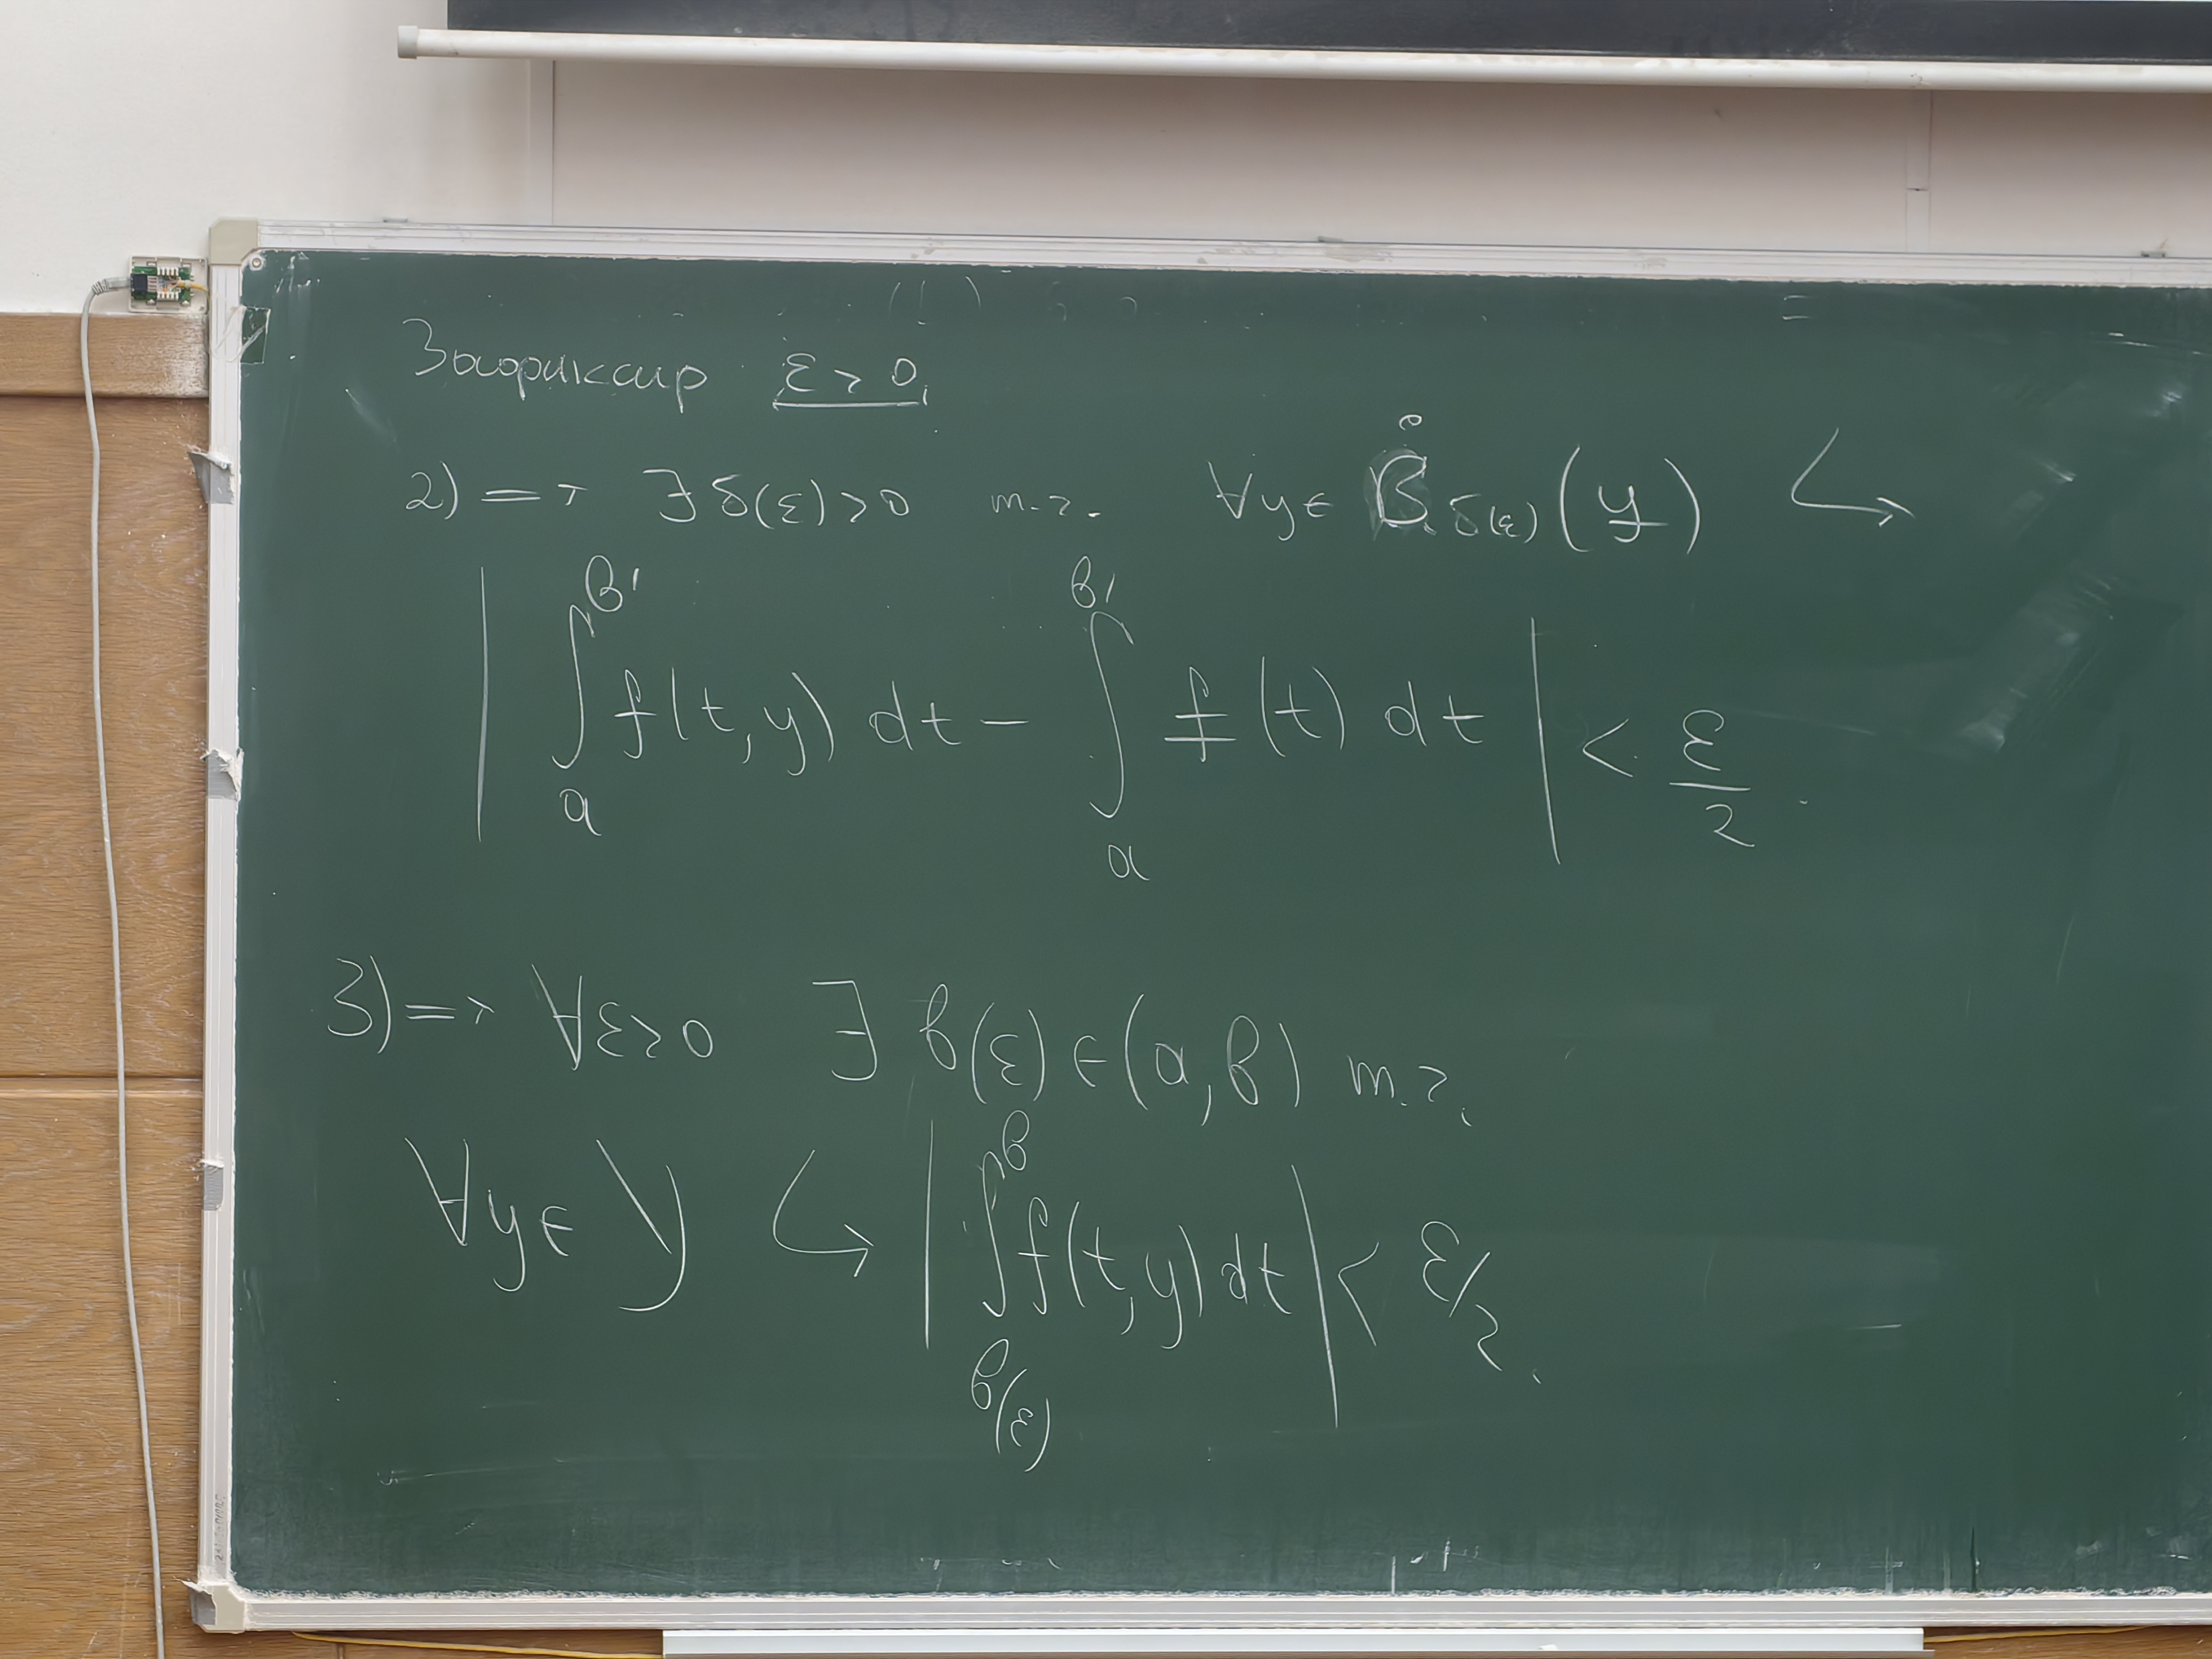 Зафиксир ε > 0
2) => ∃ δ(ε) > 0 т.ч. ∀y ∈ B̊_δ(ε)(y̲) ↪
| ∫_a^b' f(t,y) dt - ∫_a^b' f̲(t) dt | < ε/2.
3) => ∀ε>0 ∃ b(ε) ∈ (a,b) т.ч.
∀y ∈ Y ↪ | ∫_b(ε)^b f(t,y) dt | < ε/2.